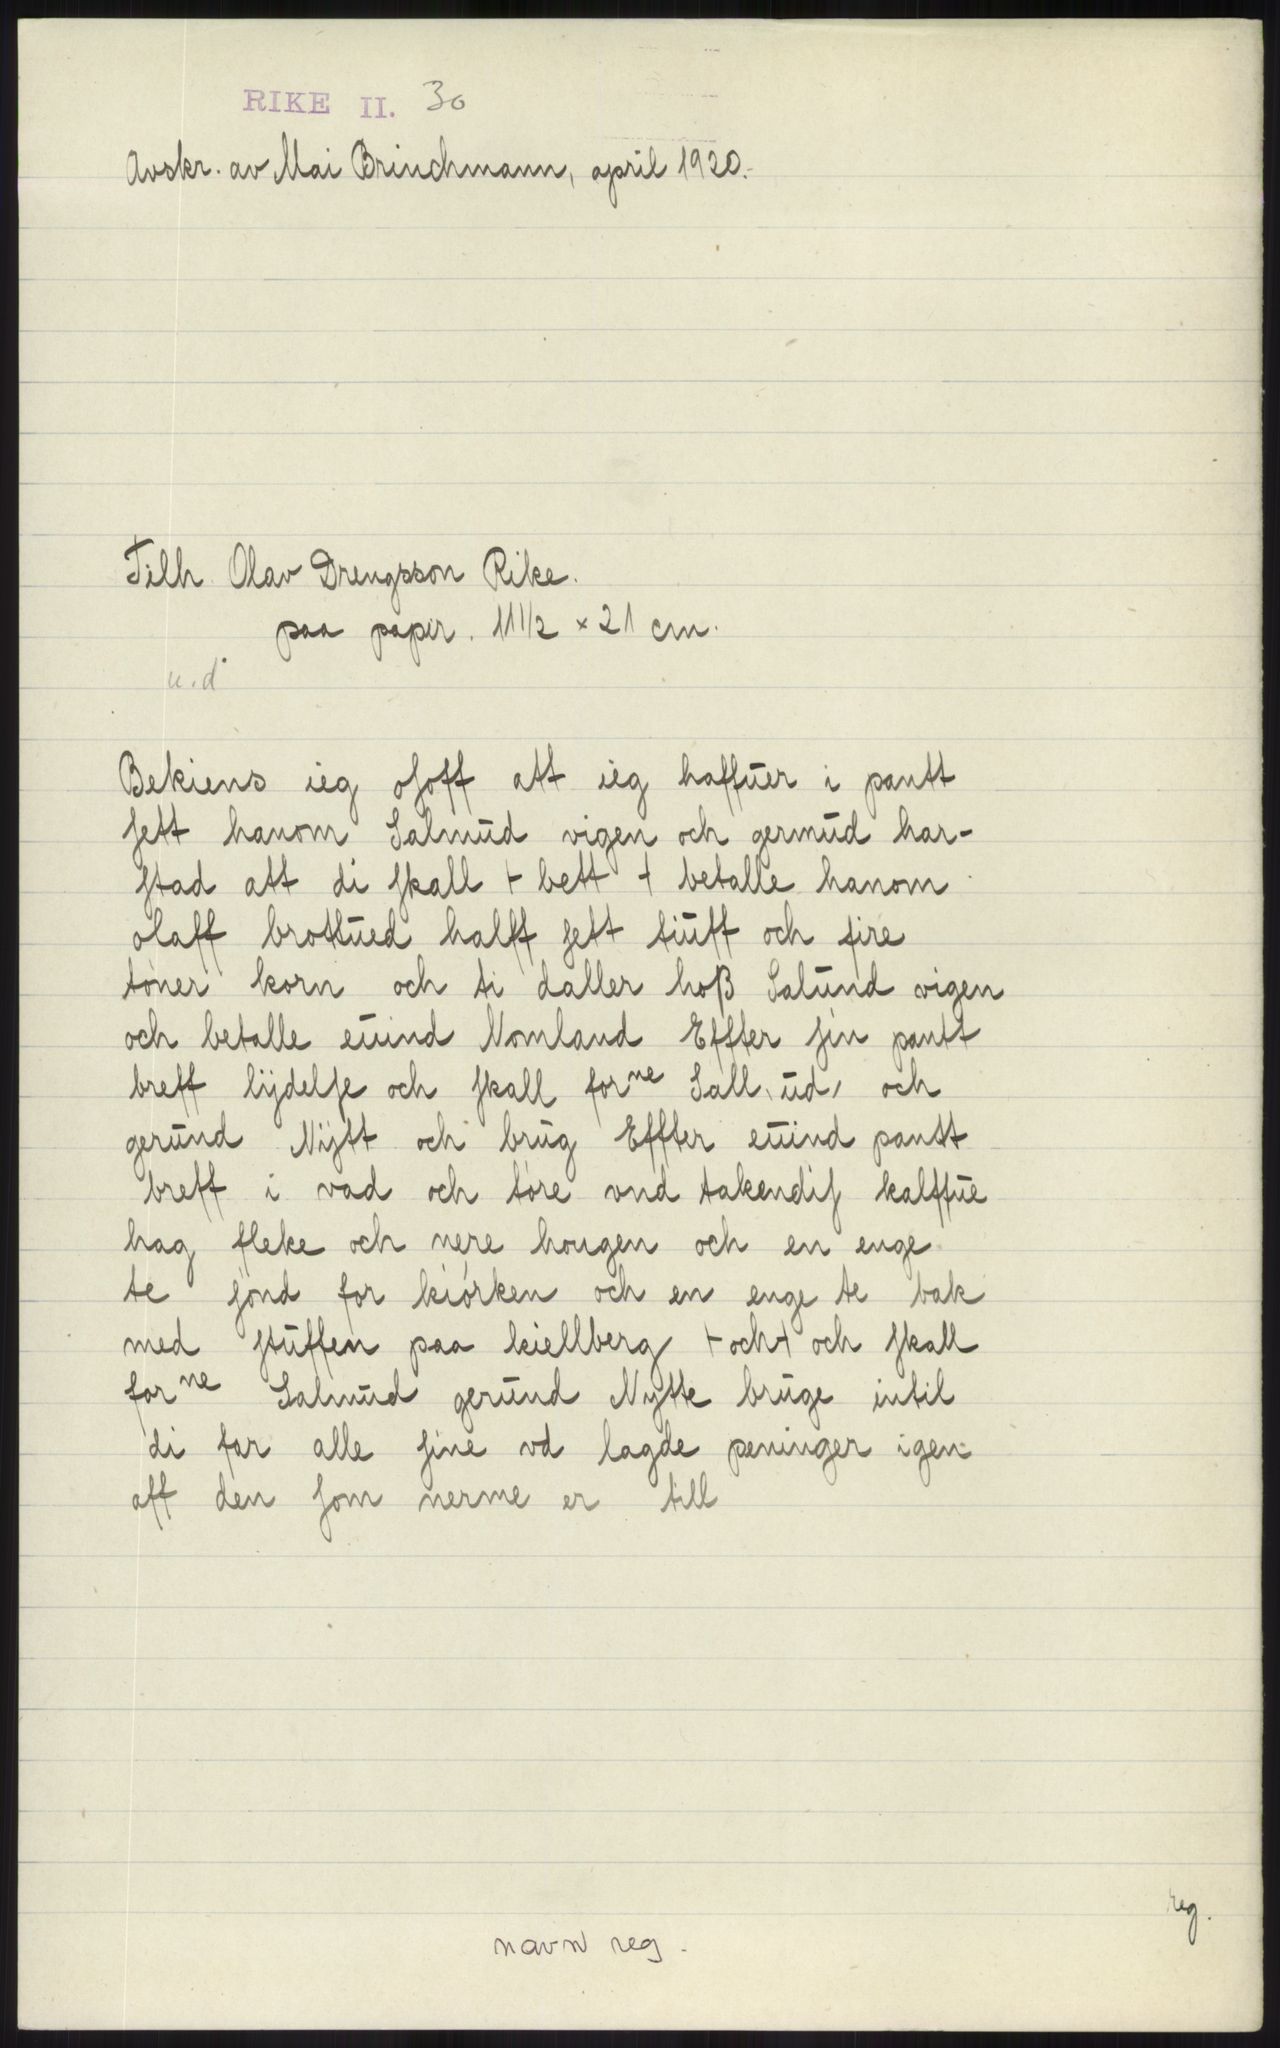 RIKE II. 30
Avskr. av Mai Brinchmann, april 1920.
Tilh. Olav Drengsson Rike.
paa papir. 11 1/2 × 21 cm.
u.d
Bekiens ieg oloff att ieg haffuer i pantt
sett hanom Salmud vigen och germud har-
stad att di skall + bett + betalle hanom
olaff brottued halff sett tiufft och fire
tøner korn och ti daller hoß Salund vigen
och betalle euind Nomland Effter sin pantt
breff lijdelse och skall forne Sall,ud, och
gerund Nijtt och brug Effter euind pantt
breff i vad och tøre vnd takendis kalffue
hag fleke och nere hougen och en enge
te sønd for kiørken och en enge te bak
med stuffen paa kiellberg + och + och skall
forne Salmud gerund Nytte bruge intil
di far alle sine vd lagde peninger igen
aff den som nerme er till
reg.
navn reg.